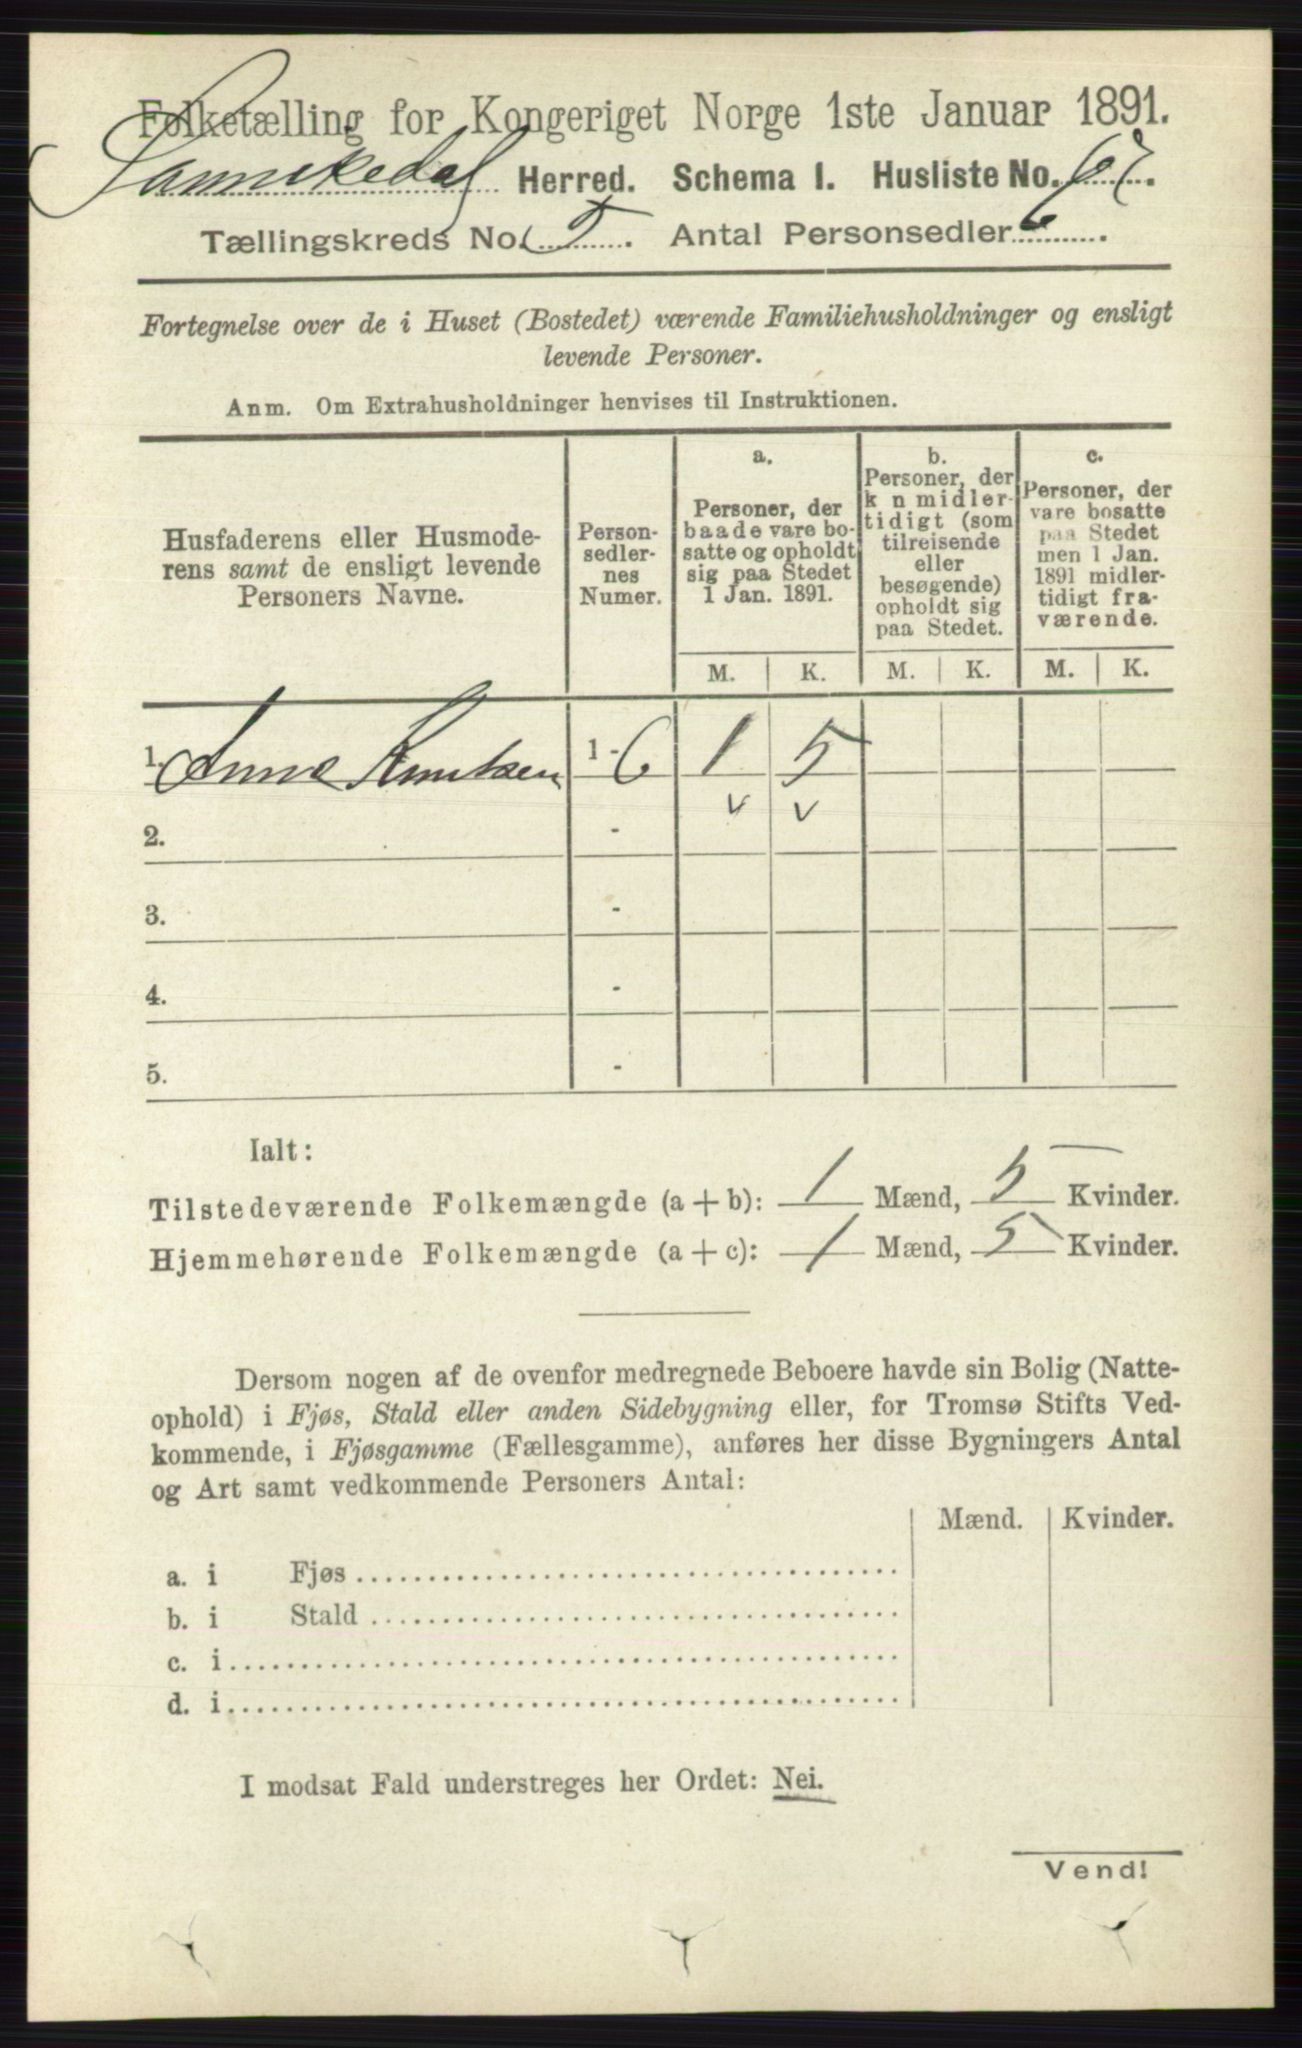 Folketælling for Kongeriget Norge 1ste Januar 1891.
Sannikedal Herred. Schema I. Husliste No. 67.
Tællingskreds No. 5. Antal Personsedler 6.
Fortegnelse over de i Huset (Bostedet) værende Familiehusholdninger og ensligt
levende Personer.
Anm. Om Extrahusholdninger henvises til Instruktionen.
Husfaderens eller Husmode-
rens samt de ensligt levende
Personers Navne.
Person-
sedler-
nes
Numer.
a.
Personer, der
baade vare bo-
satte og opholdt
sig paa Stedet
1 Jan. 1891.
b.
Personer, der
k n midler-
tidigt (som
tilreisende
eller
besøgende)
opholdt sig
paa Stedet.
c.
Personer, der
vare bosatte
paa Stedet
men 1 Jan.
1891 midler-
tidigt fra-
værende.
M. K. M. K. M. K.
1. Anne Knutsen 1 - 6 1 5
v v
2. -
3. -
4. -
5. -
Ialt:
Tilstedeværende Folkemængde (a + b): 1 Mænd, 5 Kvinder.
Hjemmehørende Folkemængde (a + c): 1 Mænd, 5 Kvinder.
Dersom nogen af de ovenfor medregnede Beboere havde sin Bolig (Natte-
ophold) i Fjøs, Stald eller anden Sidebygning eller, for Tromsø Stifts Ved-
kommende, i Fjøsgamme (Fællesgamme), anføres her disse Bygningers Antal
og Art samt vedkommende Personers Antal:
Mænd. Kvinder.
a. i Fjøs
b. i Stald
c. i
d. i
I modsat Fald understreges her Ordet: Nei.
Vend!